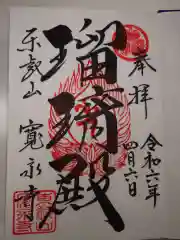 奉拝
令和六年
四月六日
瑠璃殿
東叡山
寛永寺